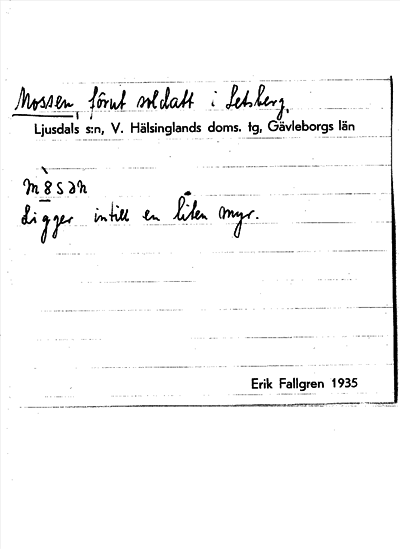 Mossen, förut soldatt i Letsberg.
Ljusdals s:n, V. Hälsinglands doms. tg, Gävleborgs län
Ligger intill en liten myr.
Erik Fallgren 1935